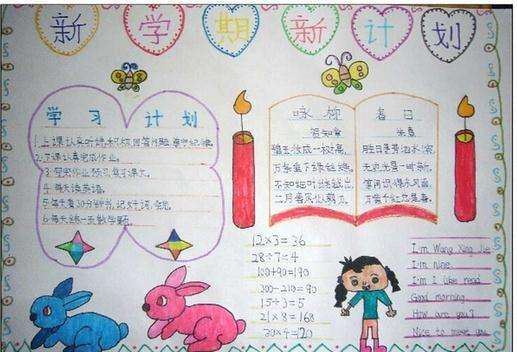 新学期新计划
学习计划
1.上课认真听讲,积极回答问题,遵守纪律。
2.下课认真完成作业。
3.写完作业预习,复习课文。
4.每天读英语。
5.每天看30分钟书,记好词、好句。
6.每天练一页数学题。
咏柳
贺知章
碧玉妆成一树高,
万条垂下绿丝绦。
不知细叶谁裁出,
二月春风似剪刀。
春日
朱熹
胜日寻芳泗水滨,
无边光景一时新。
等闲识得东风面,
万紫千红总是春。
12×3=36
28÷7=4
100+90=190
300-210=90
15÷3=5
21×8=168
30×4=120
I'm Wang Xing Jie
I'm nine
I'm I like read
Good morning
How are you?
Nice to meet you.